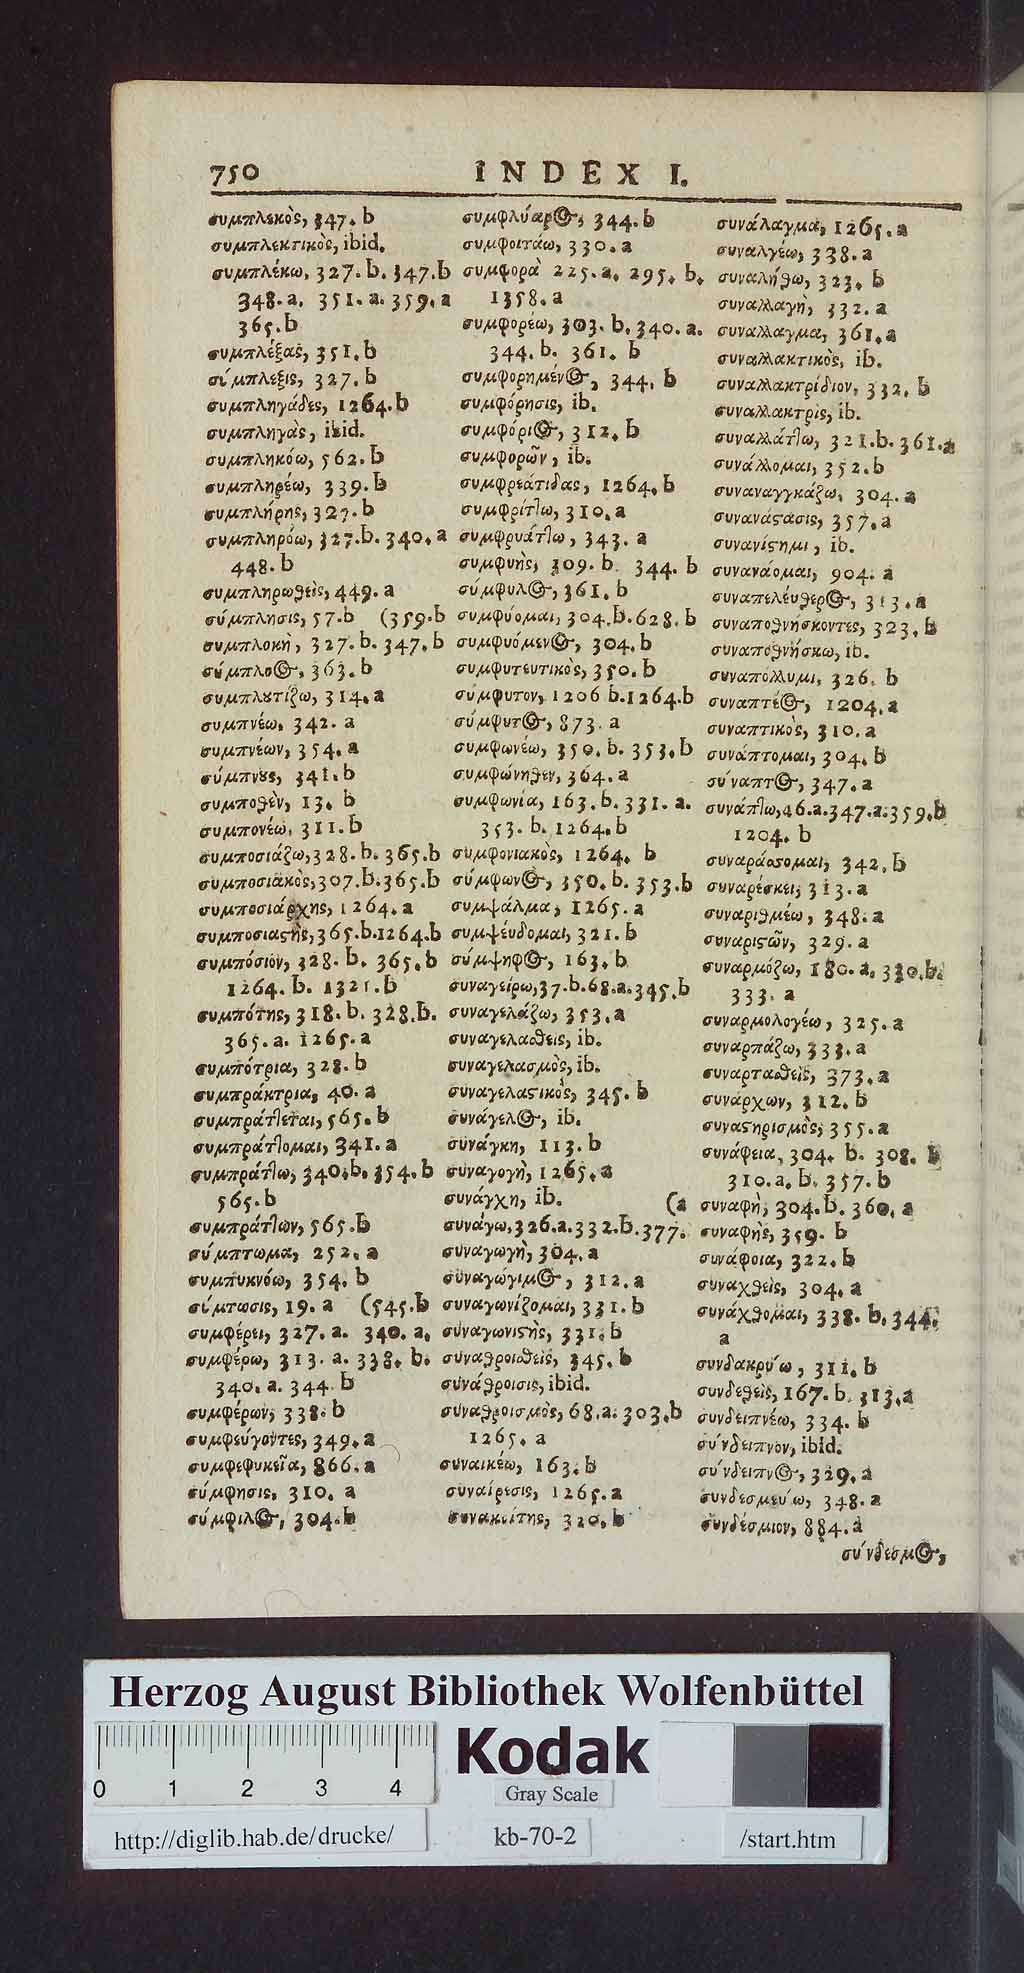 750 INDEX I.
συμπλεκὸς, 347. b
συμπλεκτικὸς, ibid.
συμπλέκω, 327. b. 347. b
348. a. 351. a. 359. a
365. b
συμπλέξας, 351. b
σύμπλεξις, 327. b
συμπληγάδες, 1264. b
συμπληγὰς, ibid.
συμπληκόω, 562. b
συμπληρέω, 339. b
συμπλήρης, 327. b
συμπληρόω, 327. b. 340. a
448. b
συμπληρωθεὶς, 449. a
σύμπλησις, 57. b (359. b
συμπλοκὴ, 327. b. 347. b
σύμπλοος, 363. b
συμπλȣτίζω, 314. a
συμπνέω, 342. a
συμπνέων, 354. a
σύμπνȣς, 341. b
συμποθὲν, 13. b
συμπονέω, 311. b
συμποσιάζω, 328. b. 365. b
συμποσιακὸς, 307. b. 365. b
συμποσιάρχης, 1264. a
συμποσιαϛὴς, 365. b. 1264. b
συμπόσιον, 328. b. 365. b
1264. b. 1321. b
συμπότης, 318. b. 328. b.
365. a. 1265. a
συμπότρια, 328. b
συμπράκτρια, 40. a
συμπράτlεται, 565. b
συμπράτlομαι, 341. a
συμπράτlω, 340. b. 354. b
565. b
συμπράτlων, 565. b
σύμπτωμα, 252. a
συμπυκνόω, 354. b
σύμτωσις, 19. a (545. b
συμφέρει, 327. a. 340. a.
συμφέρω, 313. a. 338. b.
340. a. 344. b
συμφέρων, 338. b
συμφεύγοντες, 349. a
συμφεφυκεῖα, 866. a
σύμφησις, 310. a
σύμφιλος, 304. b
συμφλύαρος, 344. b
συμφοιτάω, 330. a
συμφορὰ 225. a. 295. b.
1358. a
συμφορέω, 303. b. 340. a.
344. b. 361. b
συμφορημένος, 344. b
συμφόρησις, ib.
συμφόριος, 312. b
συμφορῶν, ib.
συμφρεάτιδας, 1264. b
συμφρίτlω, 310. a
συμφρυάτlω, 343. a
συμφυὴς, 309. b. 344. b
σύμφυλος, 361. b
συμφύομαι, 304. b. 628. b
συμφυόμενος, 304. b
συμφυτευτικὸς, 350. b
σύμφυτον, 1206 b. 1264. b
σύμφυτος, 873. a
συμφωνέω, 350. b. 353. b
συμφώνηθεν, 364. a
συμφωνία, 163. b. 331. a.
353. b. 1264. b
συμφονιακὸς, 1264. b
σύμφωνος, 350. b. 353. b
συμψάλμα, 1265. a
συμψεύδομαι, 321. b
σύμψηφος, 163. b
συναγείρω, 37. b. 68. a. 345. b
συναγελάζω, 353. a
συναγελασθεις, ib.
συναγελασμὸς, ib.
συναγελαϛικὸς, 345. b
συνάγελος, ib.
σύναγκη, 113. b
συναγογὴ, 1265. a
συνάγχη, ib. (a
συνάγω, 326. a. 332. b. 377.
συναγωγὴ, 304. a
συναγώγιμος, 312. a
συναγωνίζομαι, 331. b
συναγωνιϛὴς, 331. b
συναθροισθεὶς, 345. b
συνάθροισις, ibid.
συναθροισμὸς, 68. a. 303. b
1265. a
συναικέω, 163. b
συναίρεσις, 1265. a
320. b
συνάλαγμα, 1265. a
συναλγέω, 338. a
συναλήθω, 323. b
συναλλαγὴ, 332. a
συναλλαγμα, 361. a
συναλλακτικὸς, ib.
συναλλακτρίδιον, 332. b
συναλλακτρὶς, ib.
συναλλάτlω, 321. b. 361. a
συνάλλομαι, 352. b
συναναγγκάζω, 304. a
συνανάϛασις, 357. a
συνανίϛημι, ib.
συνανάομαι, 904. a
συναπελέυθερος, 313. a
συναποθνήσκοντες, 323. b
συναποθνήσκω, ib.
συναπόλλυμι, 326. b
συναπτέος, 1204. a
συναπτικὸς, 310. a
συνάπτομαι, 304. b
σύναπτος, 347. a
συνάπlω, 46. a. 347. a. 359. b
1204. b
συναράσσομαι, 342. b
συναρέσκει, 313. a
συναριθμέω, 348. a
συναριϛῶν, 329. a
συναρμόζω, 180. a. 330. b.
333. a
συναρμολογέω, 325. a
συναρπάζω, 333. a
συναρτασθεὶς, 373. a
συνάρχων, 312. b
συναϛηρισμὸς, 355. a
συνάφεια, 304. b. 308. b
310. a. b. 357. b
συναφὴ, 304. b. 360. a
συναφὴς, 359. b
συνάφοια, 322. b
συναχθεὶς, 304. a
συνάχθομαι, 338. b. 344.
a
συνδακρύω, 311. b
συνδεθεὶς, 167. b. 313. a
συνδειπνέω, 334. b
σύνδειπνον, ibid.
σύνδειπνος, 329. a
συνδεσμεύω, 348. a
συνδέσμιον, 884. a
σύνδεσμος,
Herzog August Bibliothek Wolfenbüttel
0 1 2 3 4
Kodak
Gray Scale
http://diglib.hab.de/drucke/
kb-70-2
/start.htm